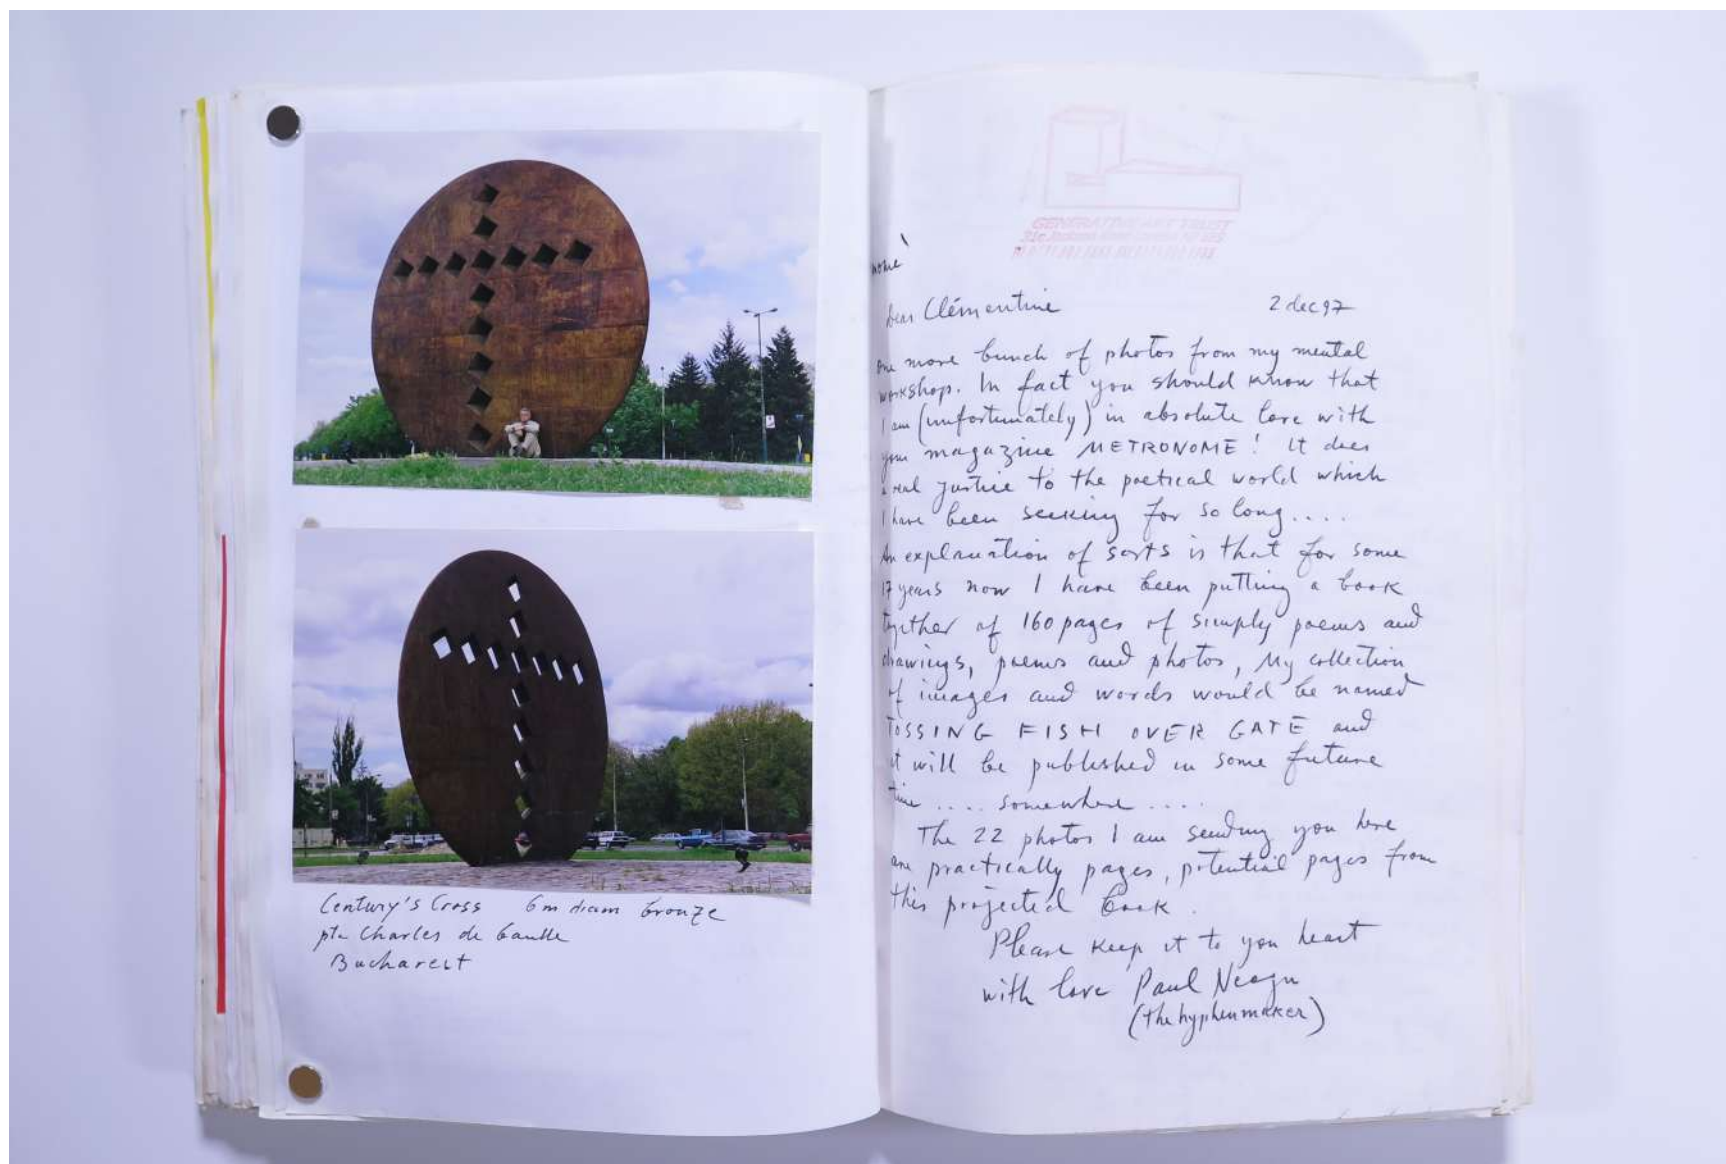 Century's Cross 6m diam bronze
pta Charles de Gaulle
Bucharest
GENERATIVE ART TRUST
Dear Clémentine 2 dec 97
One more bunch of photos from my mental
workshop. In fact you should know that
I am (unfortunately) in absolute love with
your magazine METRONOME! It does
a real justice to the poetical world which
I have been seeking for so long....
An explanation of sorts is that for some
17 years now I have been putting a book
together of 160 pages of simply poems and
drawings, poems and photos, My collection
of images and words would be named
TOSSING FISH OVER GATE and
it will be published in some future
time .... somewhere ....
The 22 photos I am sending you here
are practically pages, potential pages from
this projected book.
Please keep it to you heart
with love Paul Neagu
(the hyphenmaker)